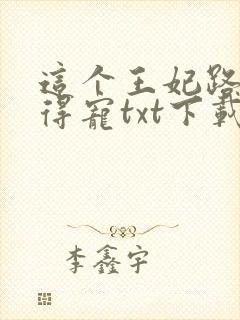 這个王妃路
得寵txt下載
李鑫宇